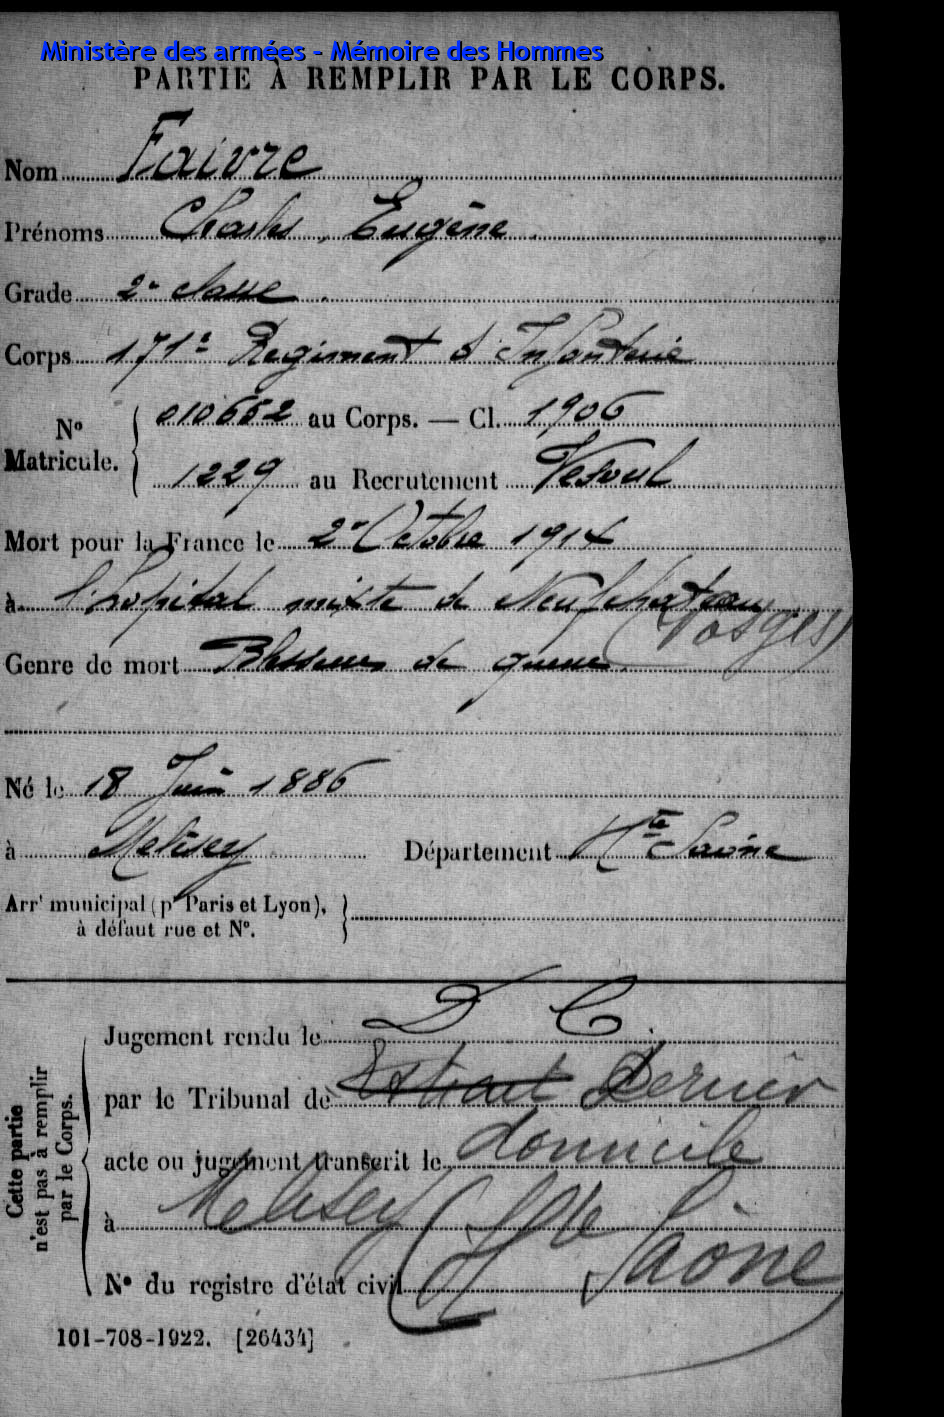 Ministère des armées - Mémoire des Hommes
PARTIE À REMPLIR PAR LE CORPS.
Nom Faivre
Prénoms Charles, Eugène.
Grade 2e classe.
Corps 171e Régiment d'Infanterie
No Matricule. { 010652 au Corps. — Cl. 1906
1229 au Recrutement Vesoul
Mort pour la France le 2 Octobre 1914
à l'hopital mixte de Neufchateau
(Vosges)
Genre de mort Blessures de guerre
Né le 18 Juin 1886
à Melisey Département Hte Saône
Arrt municipal (pr Paris et Lyon), }
à défaut rue et No.
Cette partie n'est pas à remplir par le Corps. {
Jugement rendu le D C.
par le Tribunal de Extrait Dernier
acte ou jugement transcrit le domicile
à Melisey (Hte Saône
No du registre d'état civil
101-708-1922. [26434]